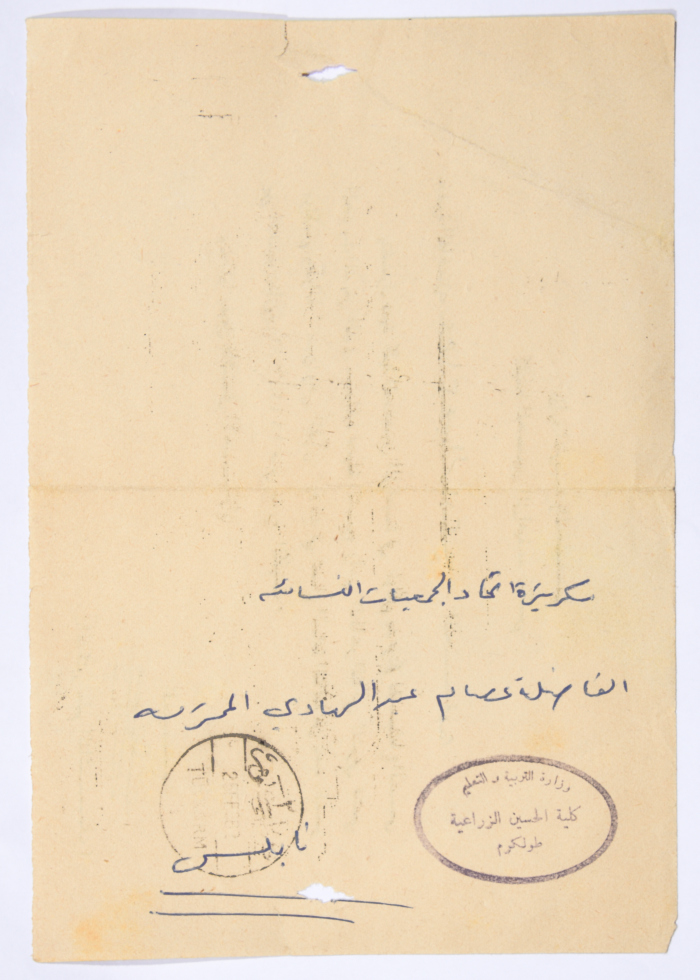 سكرتيرة اتحاد الجمعيات النسائيه
الفاضلة عصام عبد الهادي المحترمه
نابلس
وزارة التربية والتعليم
كلية الحسين الزراعية
طولكرم